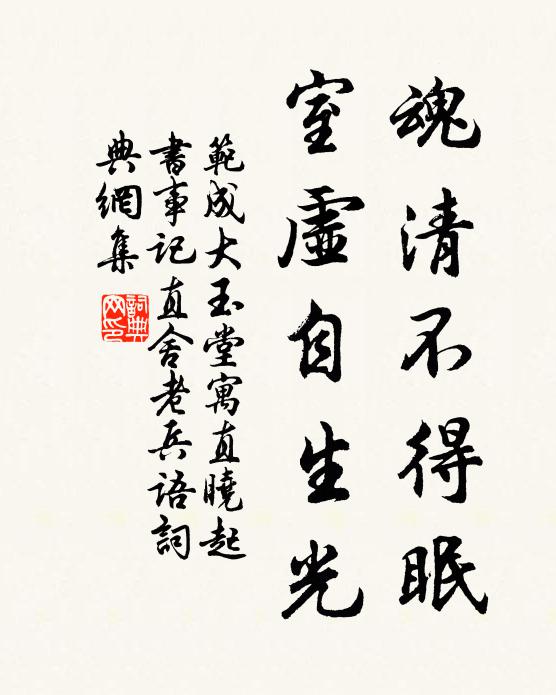 魂清不得眠
室虛自生光
範成大玉堂寓直曉起
書事記直舍老兵語詞
典網集
詞典
网印